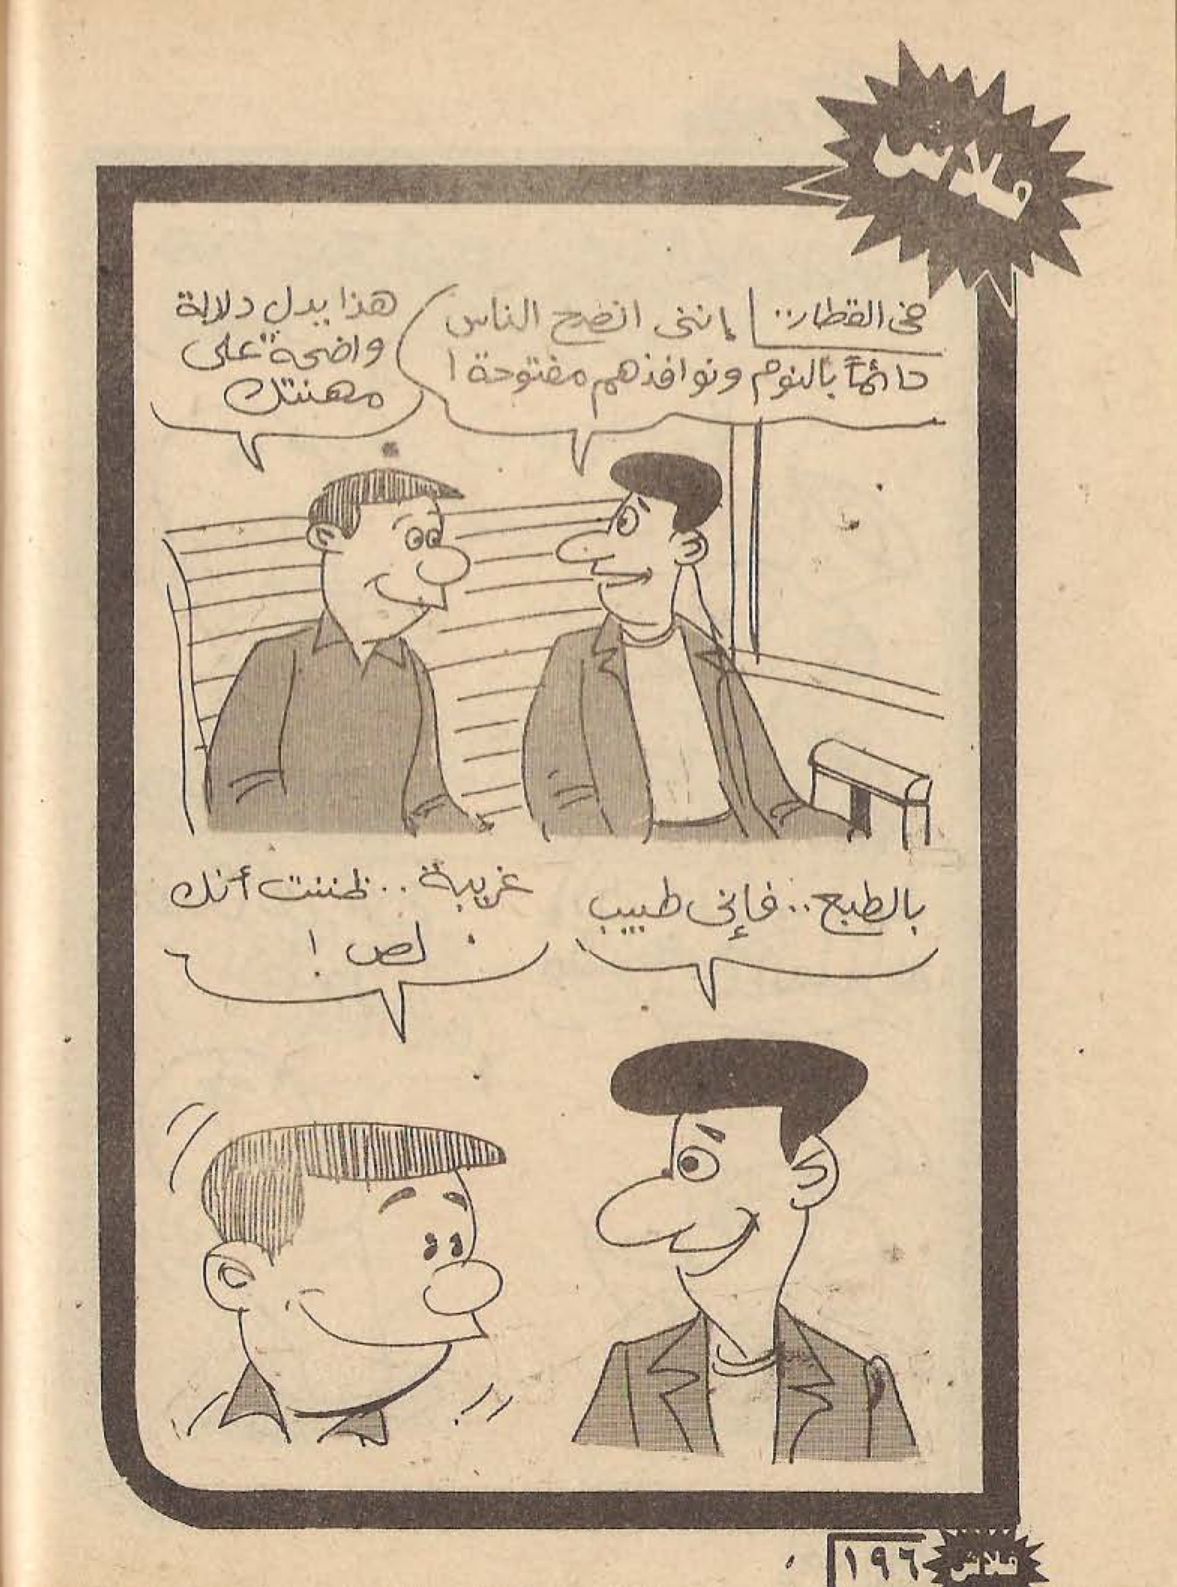 فلاش
في القطار..
إننى انصح الناس
دائماً بالنوم ونوافذهم مفتوحة!
هذا يدل دلالة
واضحة على
مهنتك
بالطبع.. فإنى طبيب
غريبة.. ظننت أنك
لص !
فلاش
١٩٦